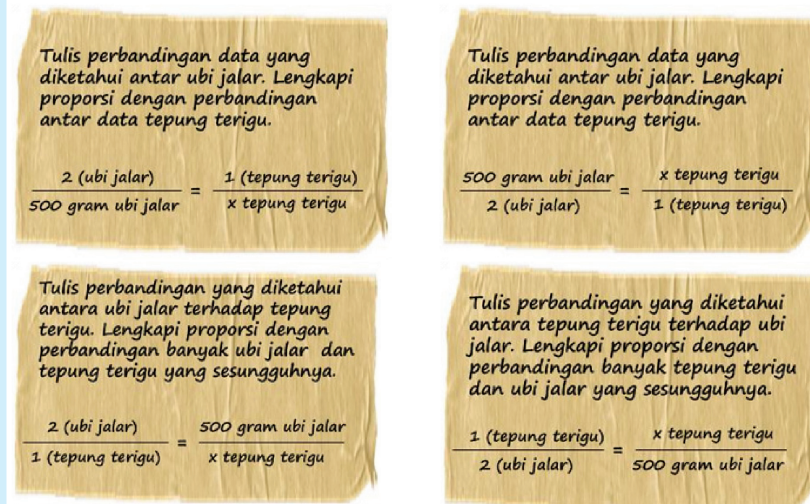 Tulis perbandingan data yang
diketahui antar ubi jalar. Lengkapi
proporsi dengan perbandingan
antar data tepung terigu.
2 (ubi jalar)
500 gram ubi jalar
=
1 (tepung terigu)
x tepung terigu
Tulis perbandingan data yang
diketahui antar ubi jalar. Lengkapi
proporsi dengan perbandingan
antar data tepung terigu.
500 gram ubi jalar
2 (ubi jalar)
=
x tepung terigu
1 (tepung terigu)
Tulis perbandingan yang diketahui
antara ubi jalar terhadap tepung
terigu. Lengkapi proporsi dengan
perbandingan banyak ubi jalar dan
tepung terigu yang sesungguhnya.
2 (ubi jalar)
1 (tepung terigu)
=
500 gram ubi jalar
x tepung terigu
Tulis perbandingan yang diketahui
antara tepung terigu terhadap ubi
jalar. Lengkapi proporsi dengan
perbandingan banyak tepung terigu
dan ubi jalar yang sesungguhnya.
1 (tepung terigu)
2 (ubi jalar)
=
x tepung terigu
500 gram ubi jalar